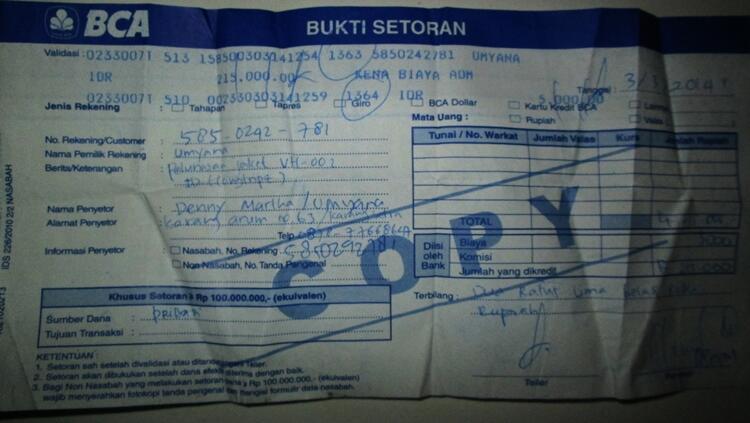 BCA BUKTI SETORAN
Validasi : 02330071 513 158500303141254 1363 5850242781 UMYANA
IDR 215.000.00 KENA BIAYA ADM
Tanggal : 3/3/2014
02330071 510 002330303141259 1364 IDR 5,000.00
Jenis Rekening : Tahapan Tapres Giro BCA Dollar Kartu Kredit BCA
Mata Uang : Rupiah Valas
No. Rekening/Customer : 585-0242-781
Nama Pemilik Rekening : Umyana
Berita/Keterangan : Pelunasan paket
Nama Penyetor : Denny Martha/Umyana
Alamat Penyetor : Karang arum no.63
Telp.
Informasi Penyetor : Nasabah, No. Rekening
Non Nasabah, No. Tanda Pengenal
Khusus Setoran ≥ Rp 100.000.000,- (ekuivalen)
Sumber Dana : Pribadi
Tujuan Transaksi :
Tunai / No. Warkat Jumlah Valas Kurs Jumlah Rupiah
TOTAL
Diisi oleh Bank
Biaya
Komisi
Jumlah yang dikredit
Terbilang : Dua Ratus Lima belas ribu
Rupiah
Teller
COPY
KETENTUAN :
1. Setoran sah setelah divalidasi atau ditandatangani Teller.
2. Setoran akan dibukukan setelah dana efektif diterima dengan baik.
3. Bagi Non Nasabah yang melakukan setoran dana ≥ Rp 100.000.000,- (ekuivalen)
wajib menyerahkan fotokopi tanda pengenal dan mengisi formulir data nasabah.
IDS 226/2010 2/2 NASABAH